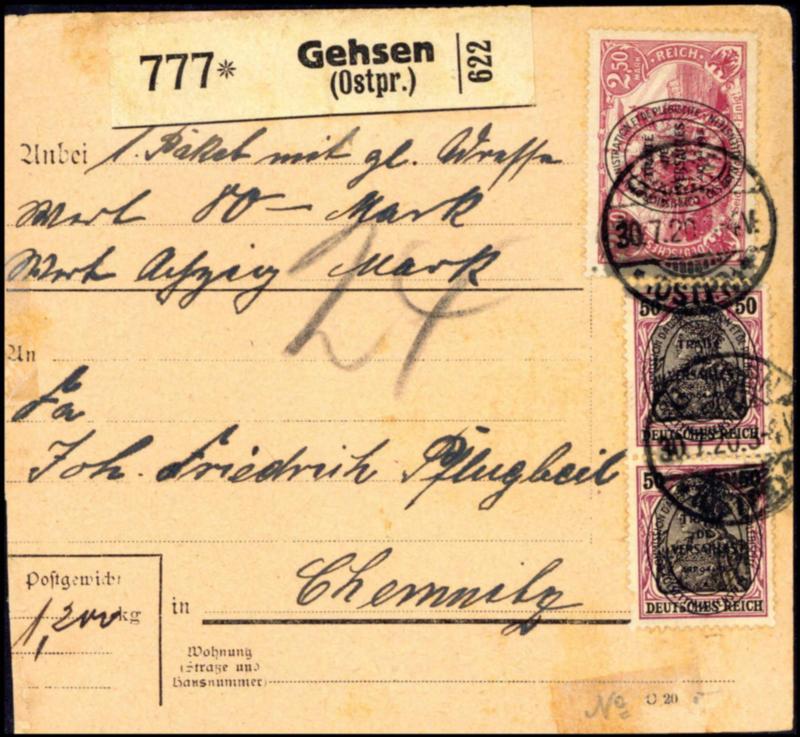 777* Gehsen (Ostpr.) 622
2,50 MARK REICH
Anbei 1 Paket mit gl. Adresse
Wert 80 – Mark
Wert Achzig Mark
24
30.7.20
OSTPR
An
Fa
Joh. Friedrich Pflugbeil
in Chemnitz
Postgewicht
1,200 kg
Wohnung
(Straße und
Hausnummer)
50 50
TRAITÉ
DE
VERSAILLES
DEUTSCHES REICH
30.7.20
50 50
TRAITÉ
DE
VERSAILLES
DEUTSCHES REICH
No
C 20